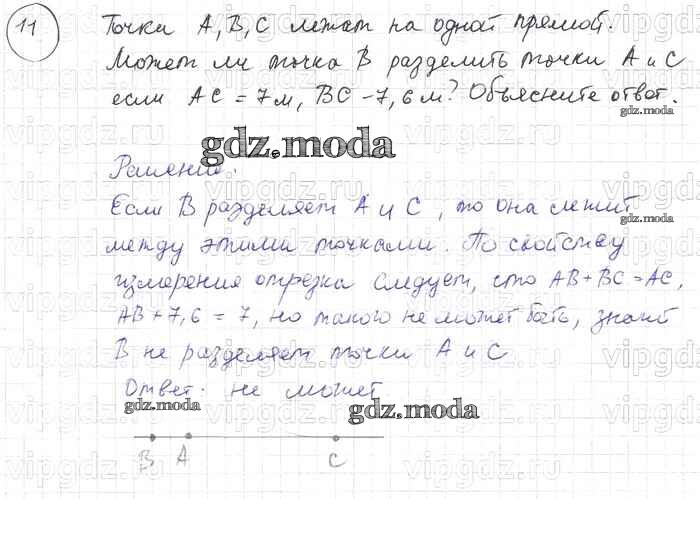 11 Точки A, B, C лежат на одной прямой.
Может ли точка B разделить точки A и C
если AC = 7м, BC - 7,6м? Объясните ответ.
gdz.moda
gdz.moda
Решение:
Если B разделяет A и C, то она лежит
gdz.moda
между этими точками. По свойству
измерения отрезка следует, что AB + BC = AC,
AB + 7,6 = 7, но такого не может быть, значит
B не разделяет точки A и C
Ответ. не может
gdz.moda
gdz.moda
B A C
vipgdz.ru